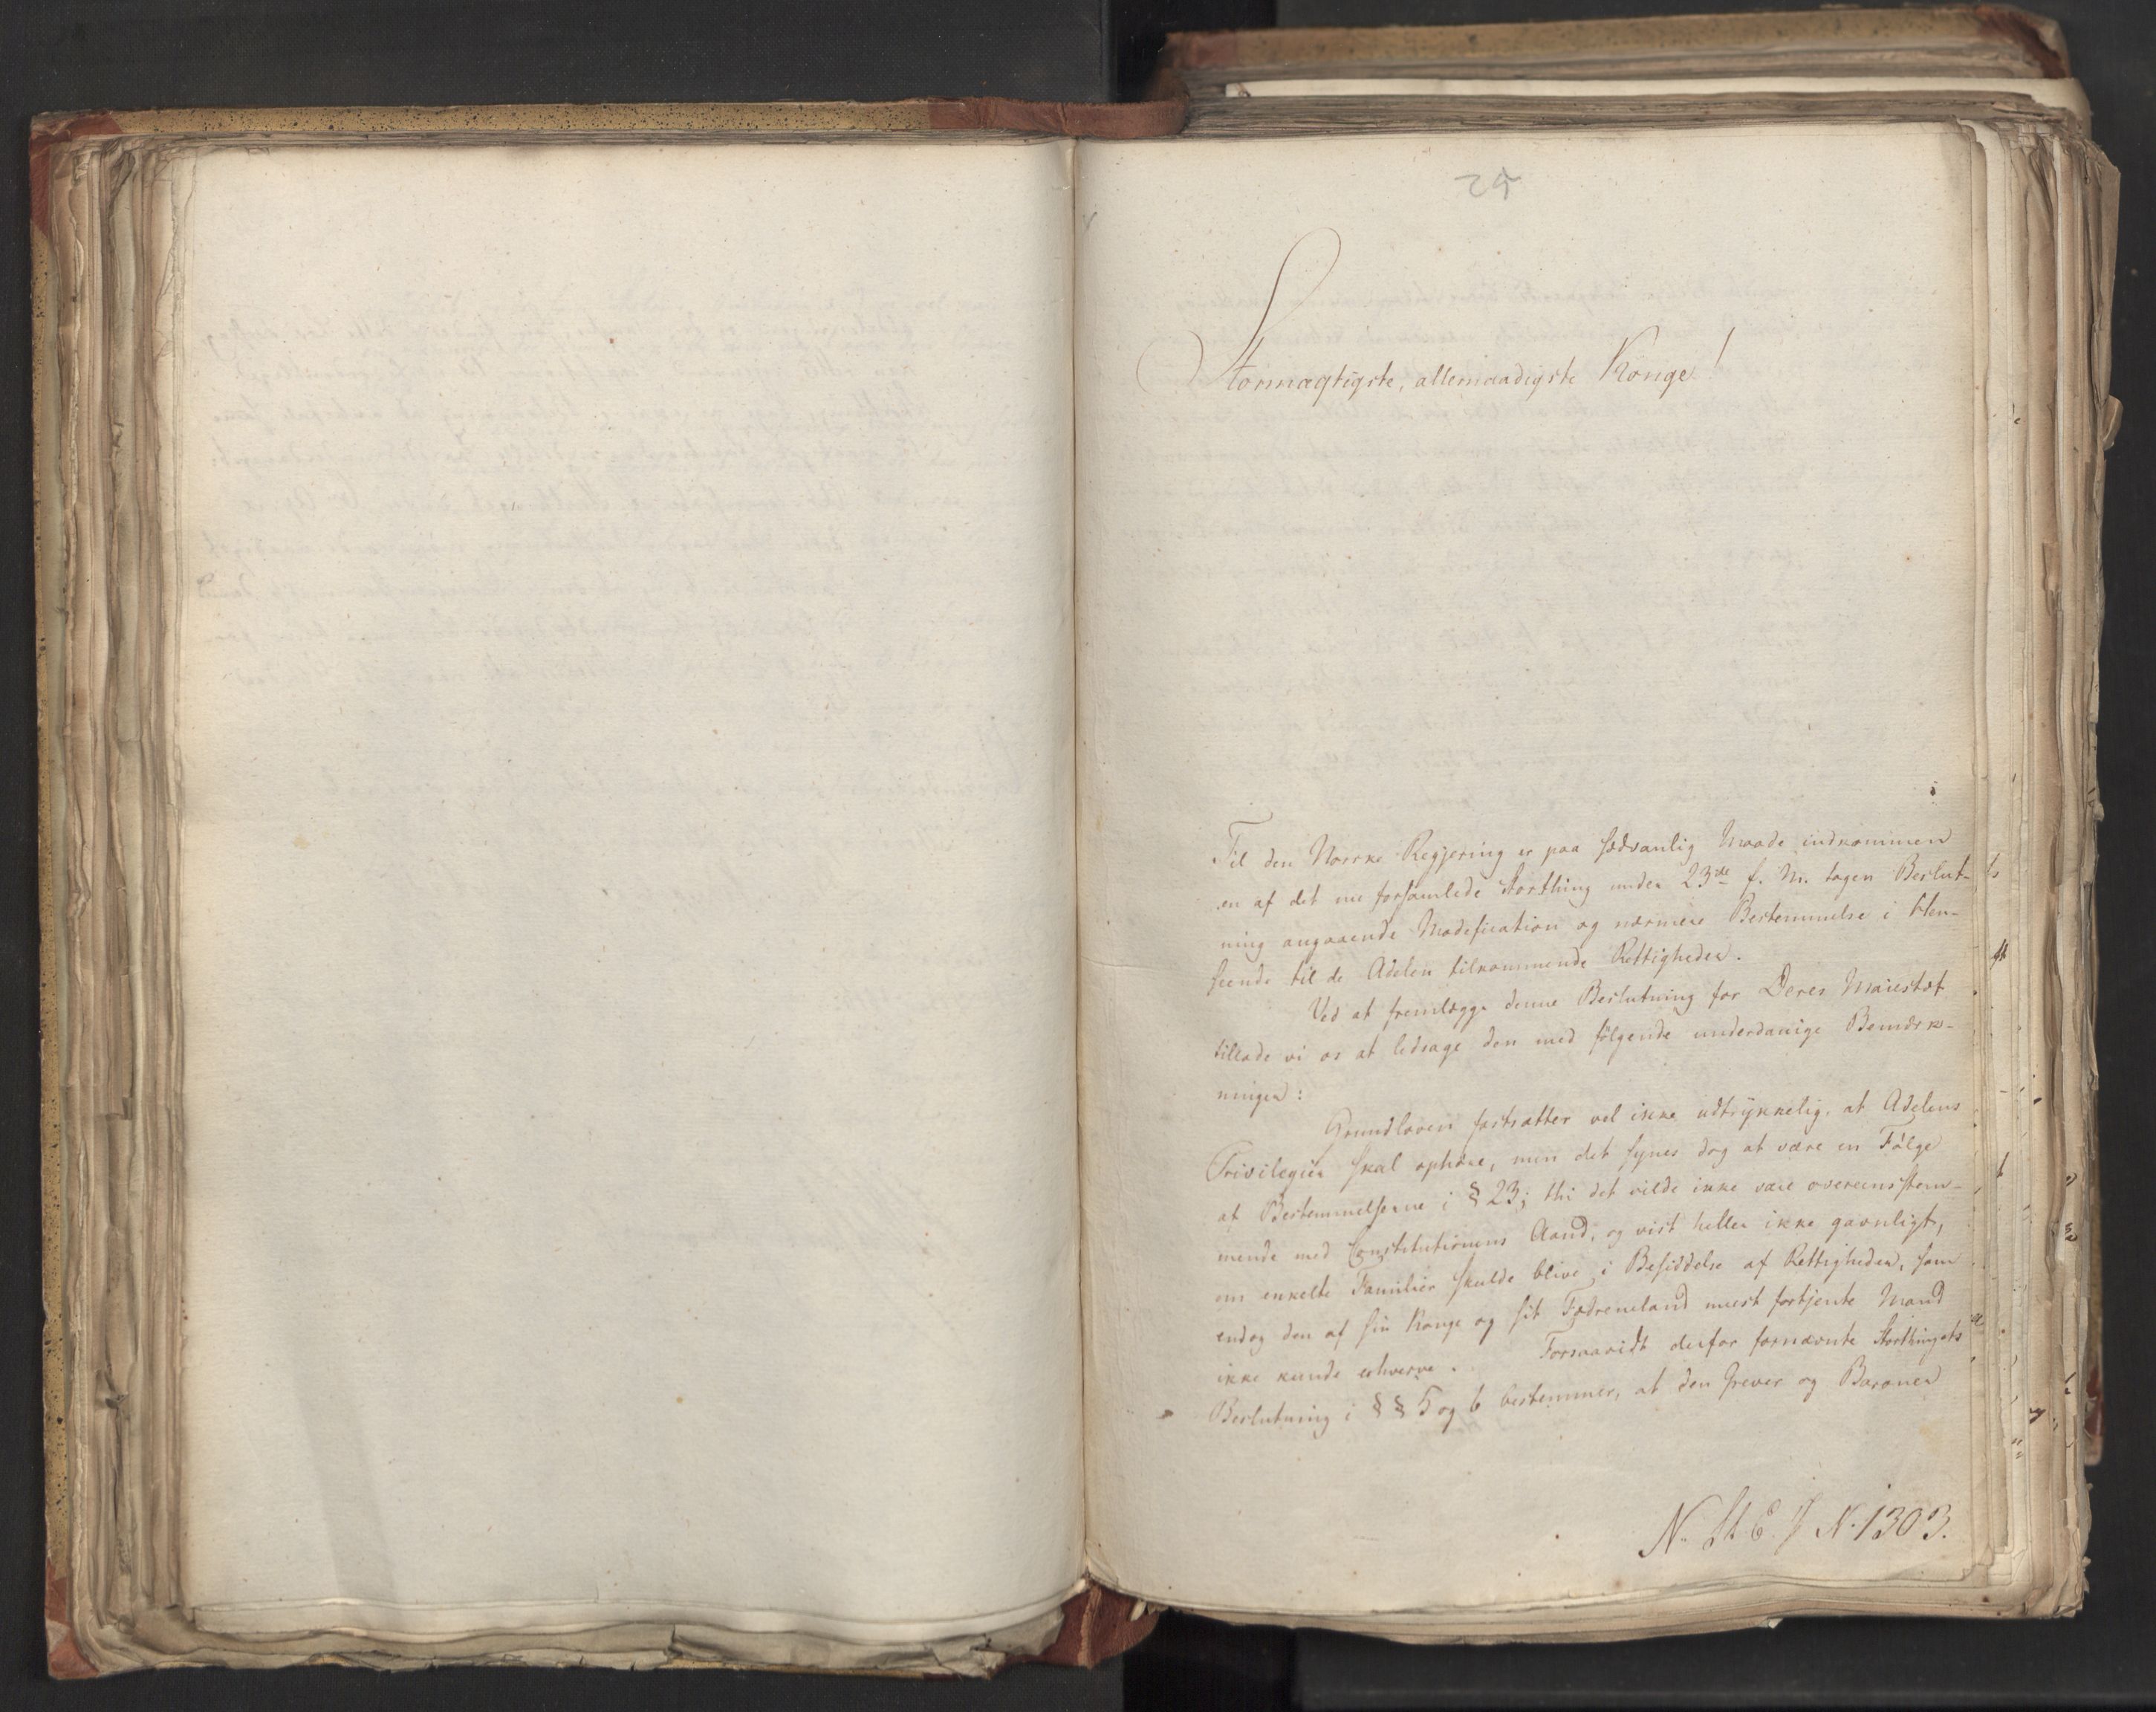 25
Stormægtigste, allernaadigste Konge!
Til den Norske Regjering er paa sædvanlig Maade indkommen
en af det nu forsamlede Storthing under 23de f. M. tagen Beslut-
ning angaaende Modification og nærmere Bestemmelse i Hen-
seende til de Adelen tilkommende Rettigheder.
Ved at fremlægge denne Beslutning for Deres Majestæt
tillade vi os at ledsage den med følgende underdanige Bemærk-
ninger:
Grundloven fastsætter vel ikke udtrykkelig, at Adelens
Privilegier skal ophøre, men det synes dog at være en Følge
af Bestemmelserne i § 23; thi det vilde ikke være overeensstem-
mende med Constitutionens Aand, og vist heller ikke gavnligt,
om enkelte Familier skulde blive i Besiddelse af Rettigheder, som
endog den af sin Konge og sit Fædreneland meest fortjente Mand
ikke kunde erhverve. Forsaavidt derfor fornævnte Storthingets
Beslutning i §§ 5 og 6 bestemmer, at den Grever og Baroner
N. St. E. J N. 1303.